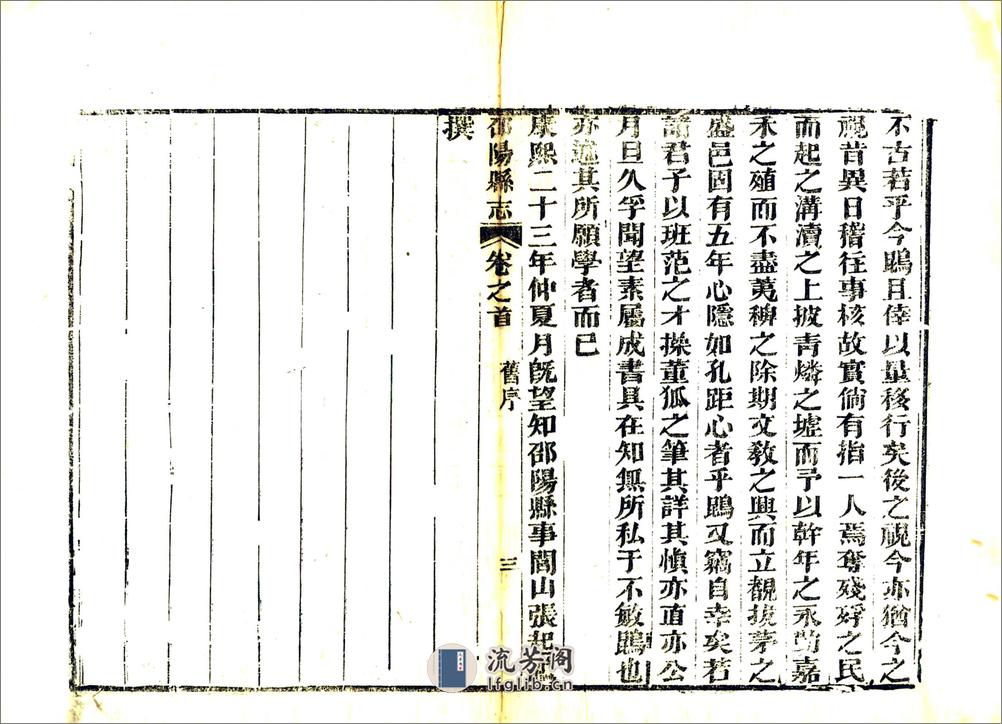 不古若乎今鵾且倖以量移行矣後之視今亦猶今之
視昔異日稽往事核故實倘有指一人焉奪殘殍之民
而起之溝瀆之上披青燐之墟而予以幹年之永勤嘉
禾之殖而不盡荑稗之除期文敎之興而立覩拔茅之
盛邑固有五年心隱如孔距心者乎鵾又竊自幸矣若
諸君子以班范之才操董狐之筆其詳其愼亦直亦公
月旦久孚聞望素屬成書具在知無所私于不敏鵾也
亦述其所願學者而已
康熙二十三年仲夏月旣望知邵陽縣事閭山張起
撰
邵陽縣志 卷之首 舊序 三
流芳阁
lfglib.cn